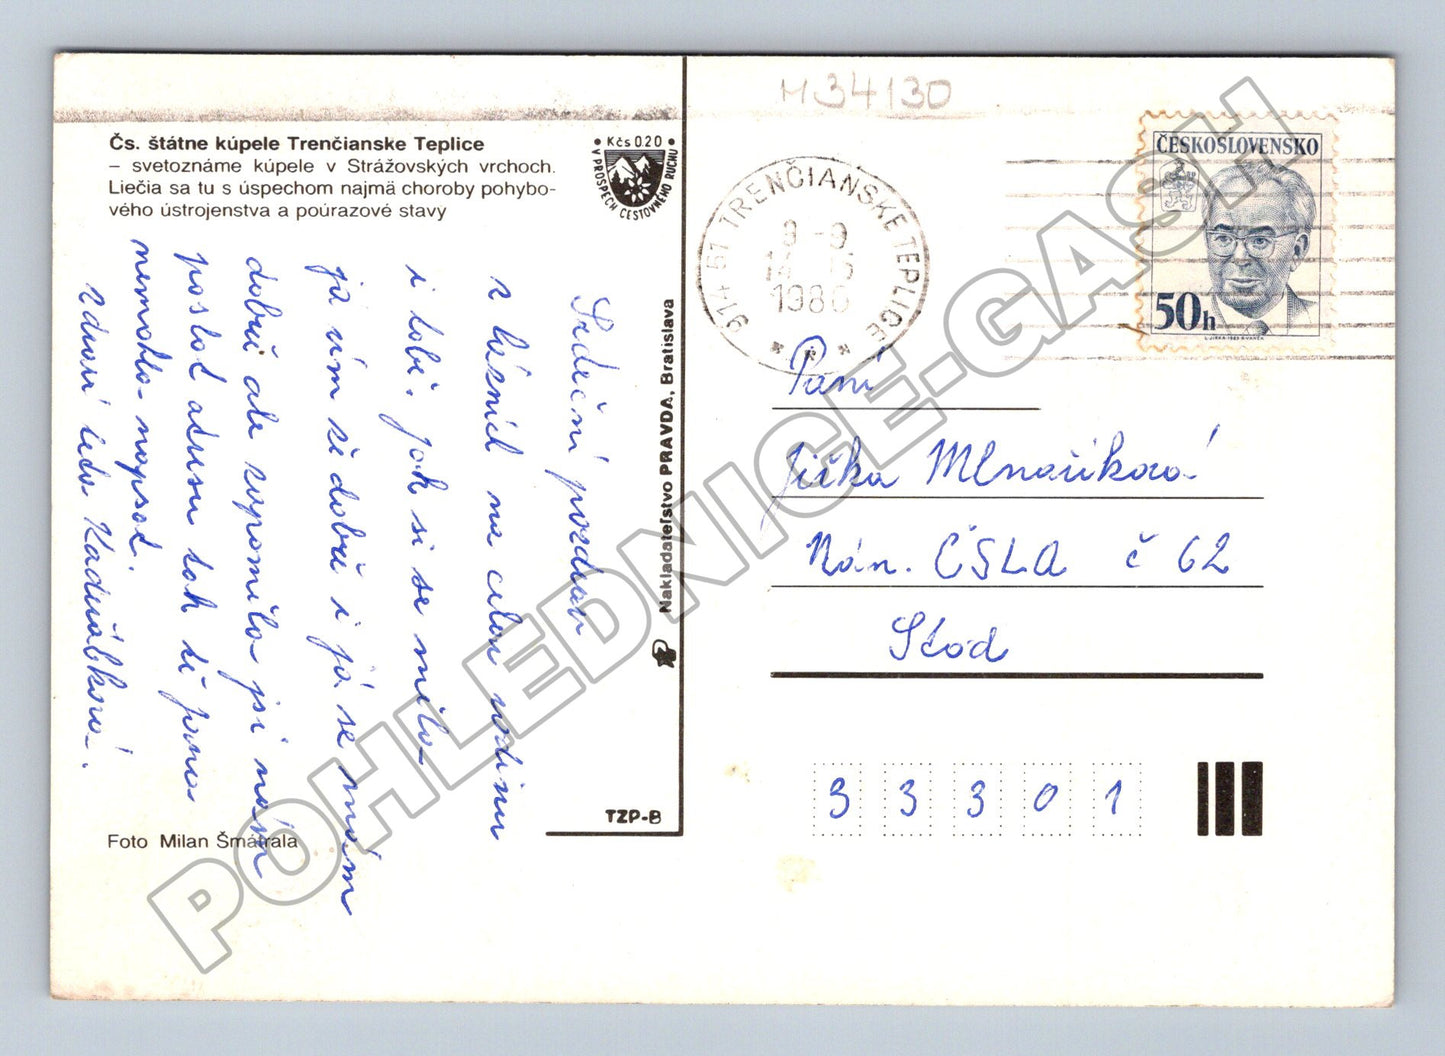 M34130
Čs. štátne kúpele Trenčianske Teplice
– svetoznáme kúpele v Strážovských vrchoch.
Liečia sa tu s úspechom najmä choroby pohybo-
vého ústrojenstva a poúrazové stavy
• Kčs 0.20 •
V PROSPECH CESTOVNÉHO RUCHU
Srdeční pozdrav
z lázních na celou rodinu
i tobě. jak si se měla
já vím že dobře i já. se mám
dobře ale zapoměla jsi nám
poslat adresu tak tě
nemohla napsat.
zdraví teta Kadeřábková.
Foto Milan Šmátrala
Nakladateľstvo PRAVDA, Bratislava
TZP-B
914 51 TRENČIANSKE TEPLICE
9 -9.
1986
ČESKOSLOVENSKO
50h
L. JIRKA-1983-R. VANĚK
Paní
Jiřka Mlnaříková
Nám. ČSLA č 62
Stod
3 3 3 0 1
POHLEDNICE-GASH